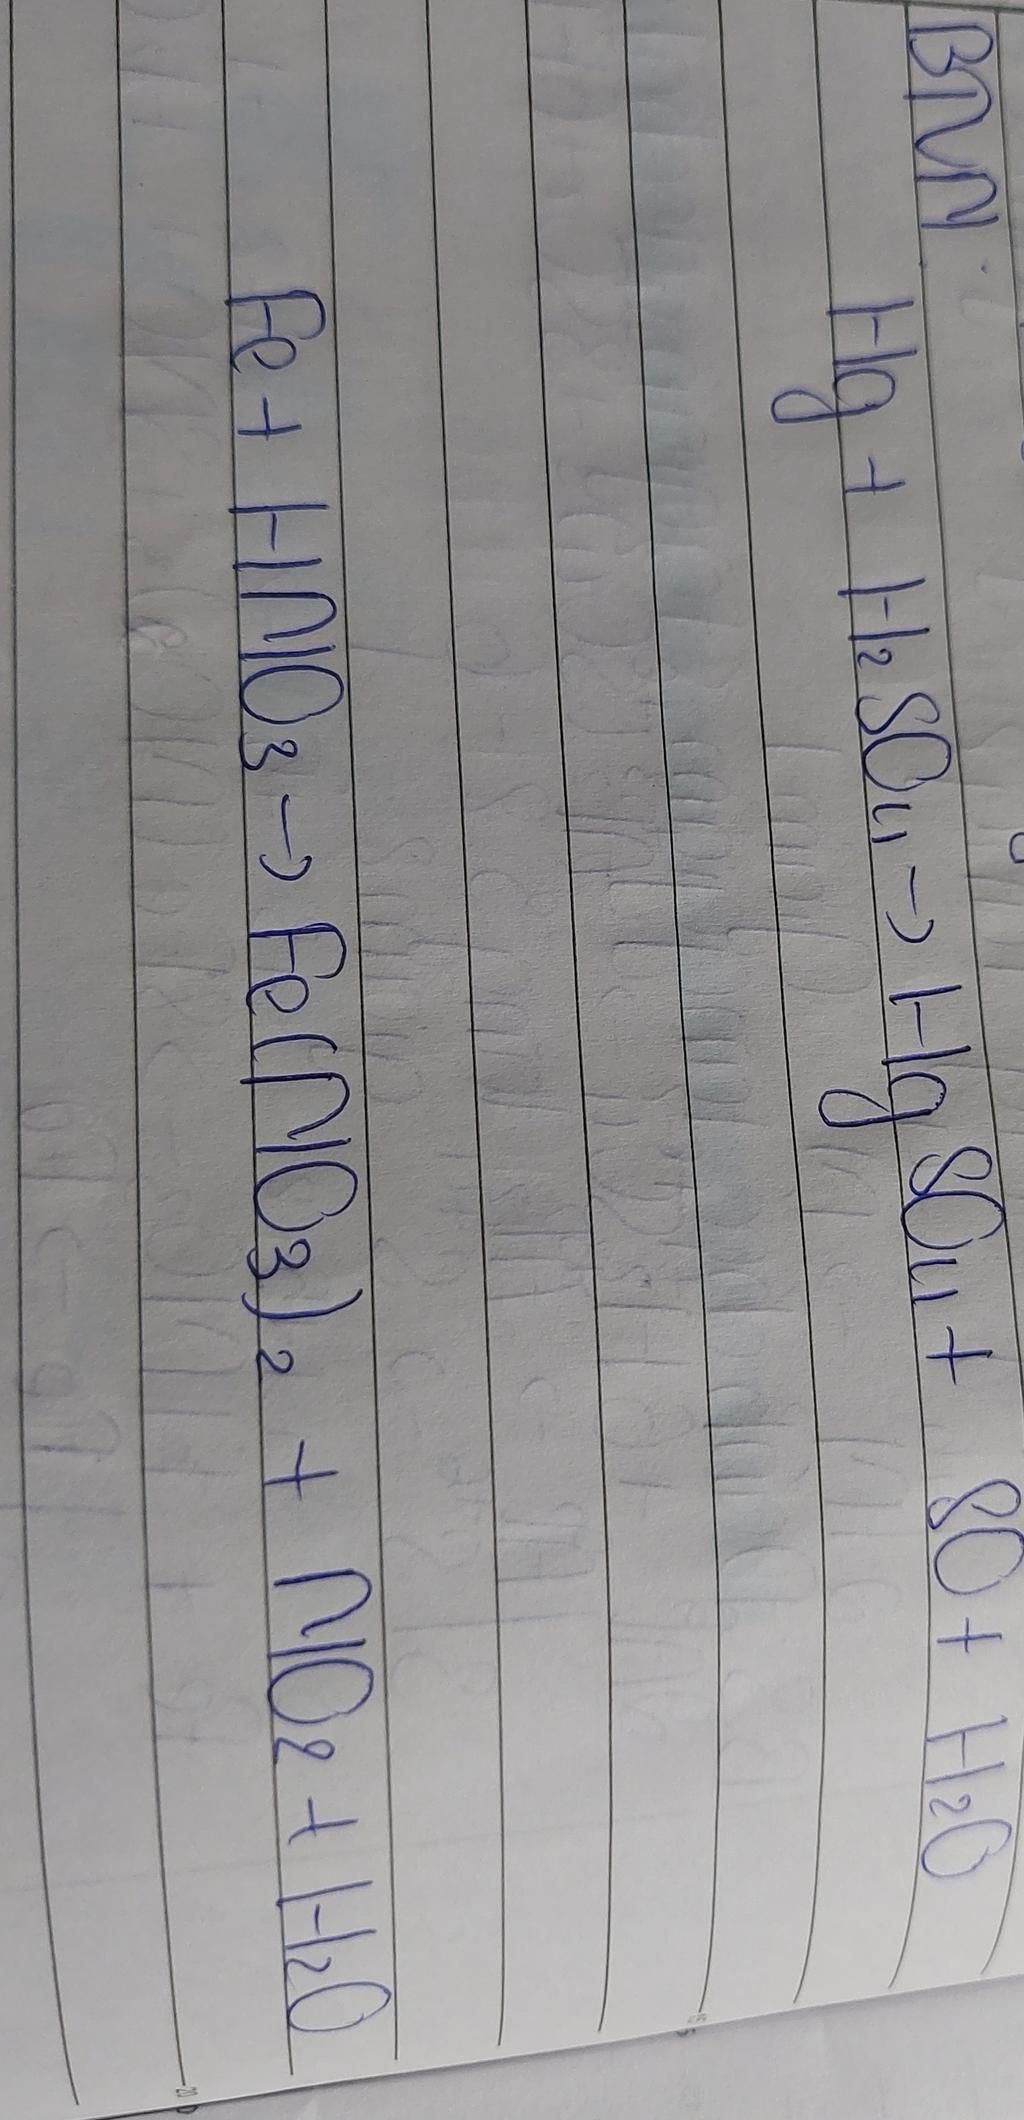 BTVN:
Hg + H₂SO₄ → HgSO₄ + SO + H₂O
Fe + HNO₃ → Fe(NO₃)₂ + NO₂ + H₂O